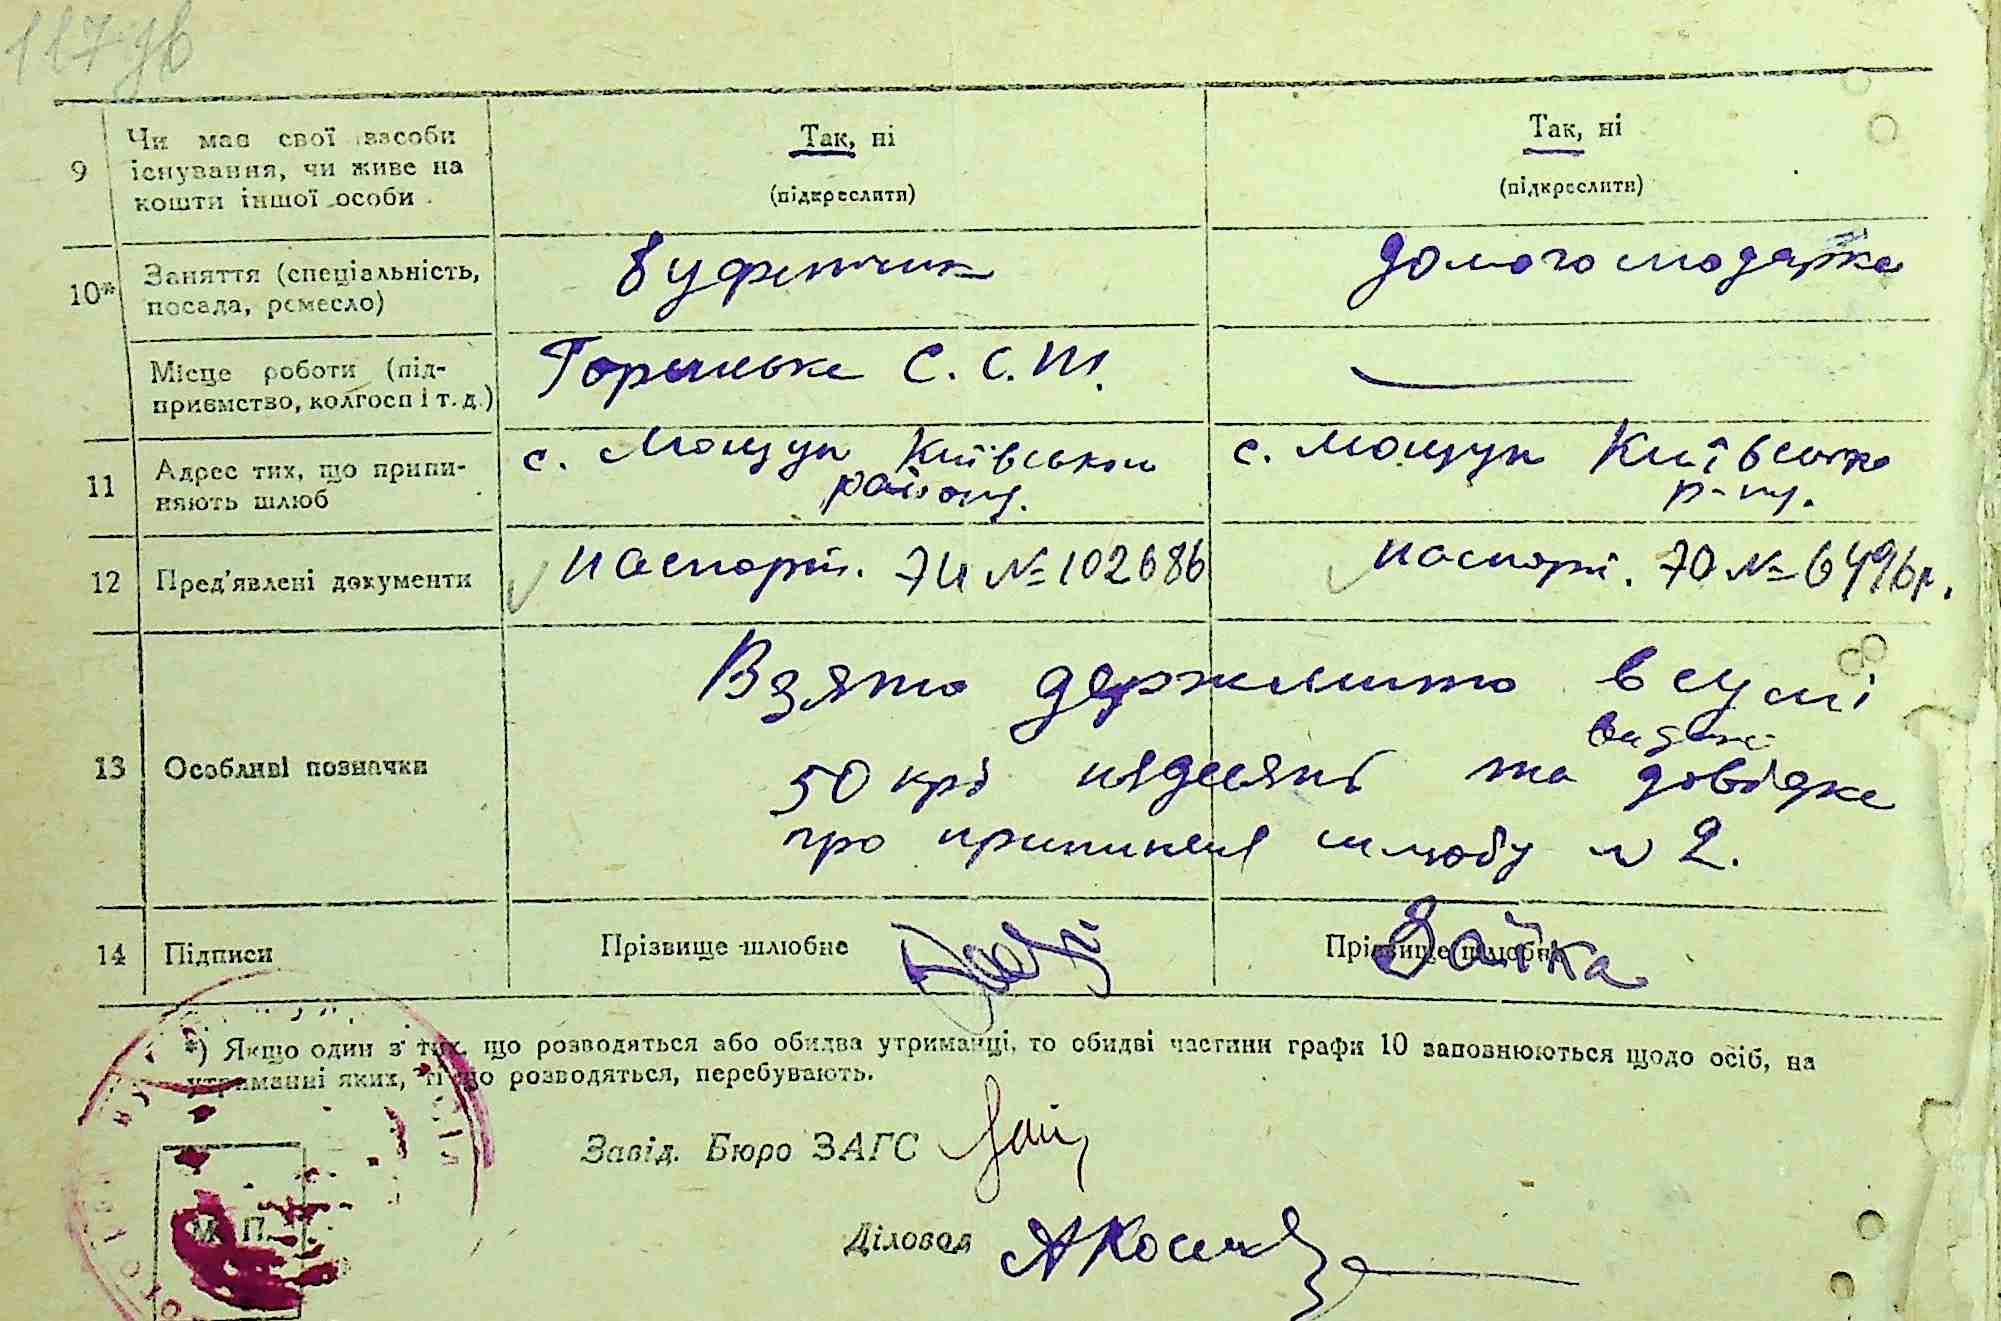 117 зв
9 Чи має свої засоби існування, чи живе на кошти іншої особи
Так, ні
(підкреслити)
Так, ні
(підкреслити)
10* Заняття (спеціальність, посада, ремесло)
буфетчик
домогосподарка
Місце роботи (підприємство, колгосп і т. д.)
С. С. Т.
11 Адрес тих, що припиняють шлюб
с. Мощун Київського
району.
с. Мощун Київсько
р-ну.
12 Пред'явлені документи
паспорт. 7И № 102686
паспорт. 70 №
13 Особливі позначки
Взято держмито в сумі
видано
50 крб пядесять та довідка
про припиненя шлюбу № 2.
14 Підписи
Прізвище шлюбне
Прізвище шлюбне
Зайка
*) Якщо один з тих, що розводяться або обидва утриманці, то обидві частини графи 10 заповнюються щодо осіб, на
утриманні яких, ті що розводяться, перебувають.
Завід. Бюро ЗАГС
Діловод
М. П.